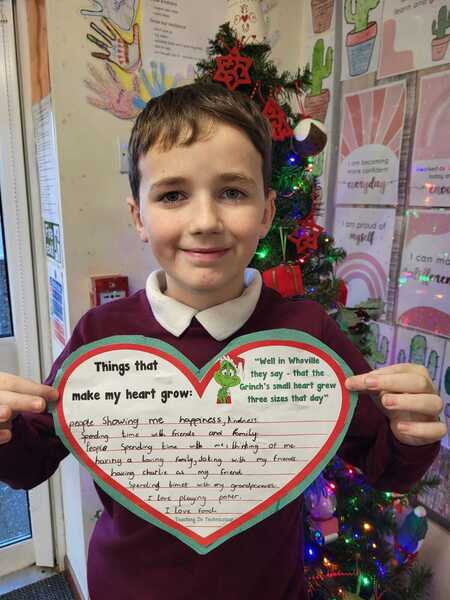 Things that
make my heart grow:
"Well in Whoville
they say - that the
Grinch's small heart grew
three sizes that day"
people Showing me happiness, kindness
Spending time with friends and family
People Spending time with me, thinking of me
having a loving family, Joking with my friends
having charlie as my friend
Spending times with my grandparents
I love playing poker.
I love food.
Teaching In Technicolour
I am becoming
more confident
everyday
I am proud of
myself
I can ma